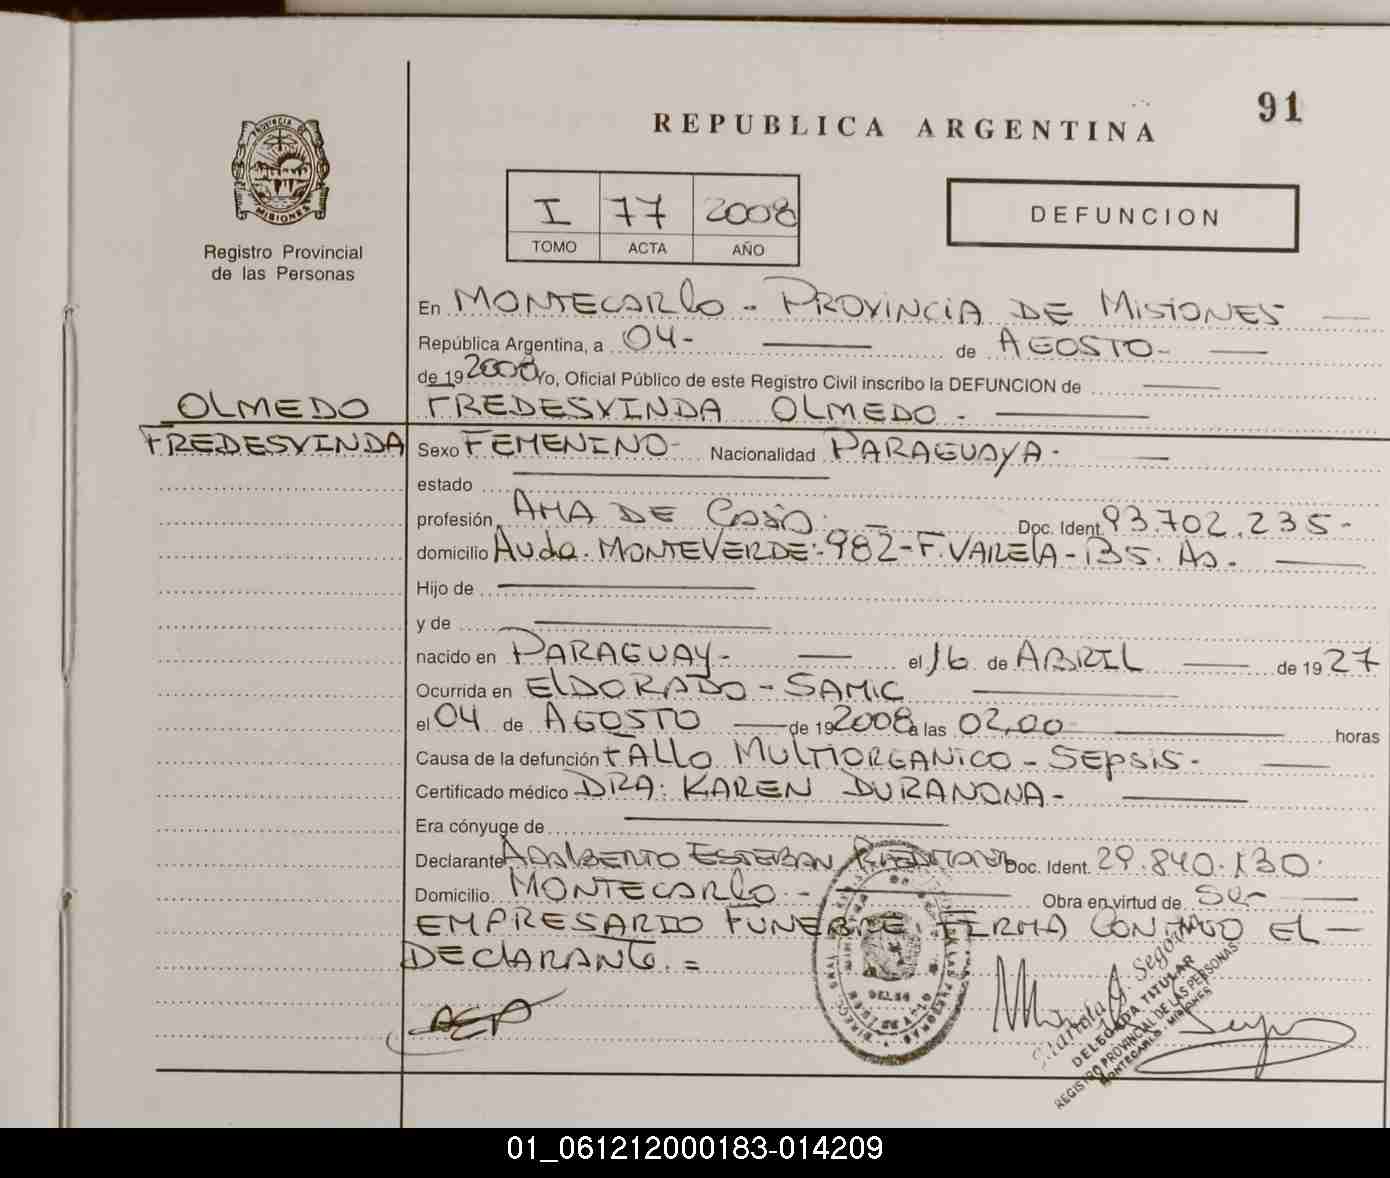 91
REPUBLICA ARGENTINA
PROVINCIA DE
MISIONES
Registro Provincial
de las Personas
I 77 2008
TOMO ACTA AÑO
DEFUNCION
En MONTECARLO - PROVINCIA DE MISIONES
República Argentina, a 04- de AGOSTO-
de 19 2008 Yo, Oficial Público de este Registro Civil inscribo la DEFUNCION de
OLMEDO FREDESVINDA OLMEDO.-
FREDESVINDA Sexo FEMENINO- Nacionalidad PARAGUAYA.
estado
profesión AMA DE CASA. Doc. Ident. 93.702.235-
domicilio Avda. MONTEVERDE.-982-F.VARELA-BS.AS.
Hijo de
y de
nacido en PARAGUAY- el 16 de ABRIL de 19 27
Ocurrida en ELDORADO-SAMIC
el 04 de AGOSTO de 19 2008 a las 02,00 horas
Causa de la defunción FALLO MULTIORGANICO - SEPSIS-
Certificado médico DRA: KAREN DURANONA-
Era cónyuge de
Declarante ADALBERTO ESTEBAN Doc. Ident. 29.840.130.
Domicilio MONTECARLO.- Obra en virtud de Ser
EMPRESARIO FUNEBRE FIRMA CONMIGO EL
DECLARANTE. =
DELEGADA TITULAR
REGISTRO PROVINCIAL DE LAS PERSONAS
MONTECARLO - MISIONES
01_061212000183-014209